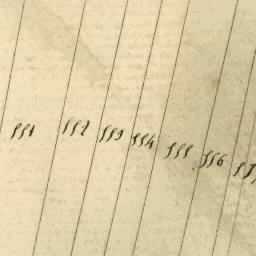 551 552 553 554 555 556